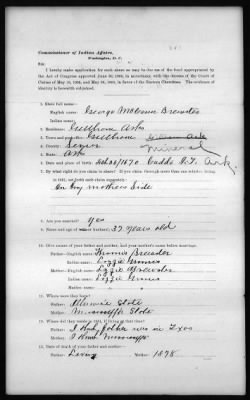 Commissioner of Indian Affairs,
Washington, D. C.
Sir:
I hereby make application for such share as may be due me of the fund appropriated by
the Act of Congress approved June 30, 1906, in accordance with the decrees of the Court of
Claims of May 18, 1905, and May 28, 1906, in favor of the Eastern Cherokees. The evidence of
identity is herewith subjoined.
1. State full name—
English name: George McCown Brewster
Indian name:
2. Residence: Gillham Ark
3. Town and post office: Gillham
4. County: Sevier
Mineral
5. State: Ark
6. Date and place of birth: 1870 Caddo Ark.
7. By what right do you claim to share? If you claim through more than one relative living
in 1851, set forth each claim separately:
On my mothers side
8. Are you married? yes
9. Name and age of wife or husband: 37 years old
10. Give names of your father and mother, and your mother's name before marriage.
Father—English name: Thomas Brewster
Father—Indian name:
Mother—English name: Lizzie Brewster
Mother—Indian name:
Maiden name: Lizzie Grimes
11. Where were they born?
Father:
Mother:
12. Where did they reside in 1851, if living at that time?
Father: I think father was in Texas
Mother: I think
13. Date of death of your father and mother—
Father: Living Mother: 1878